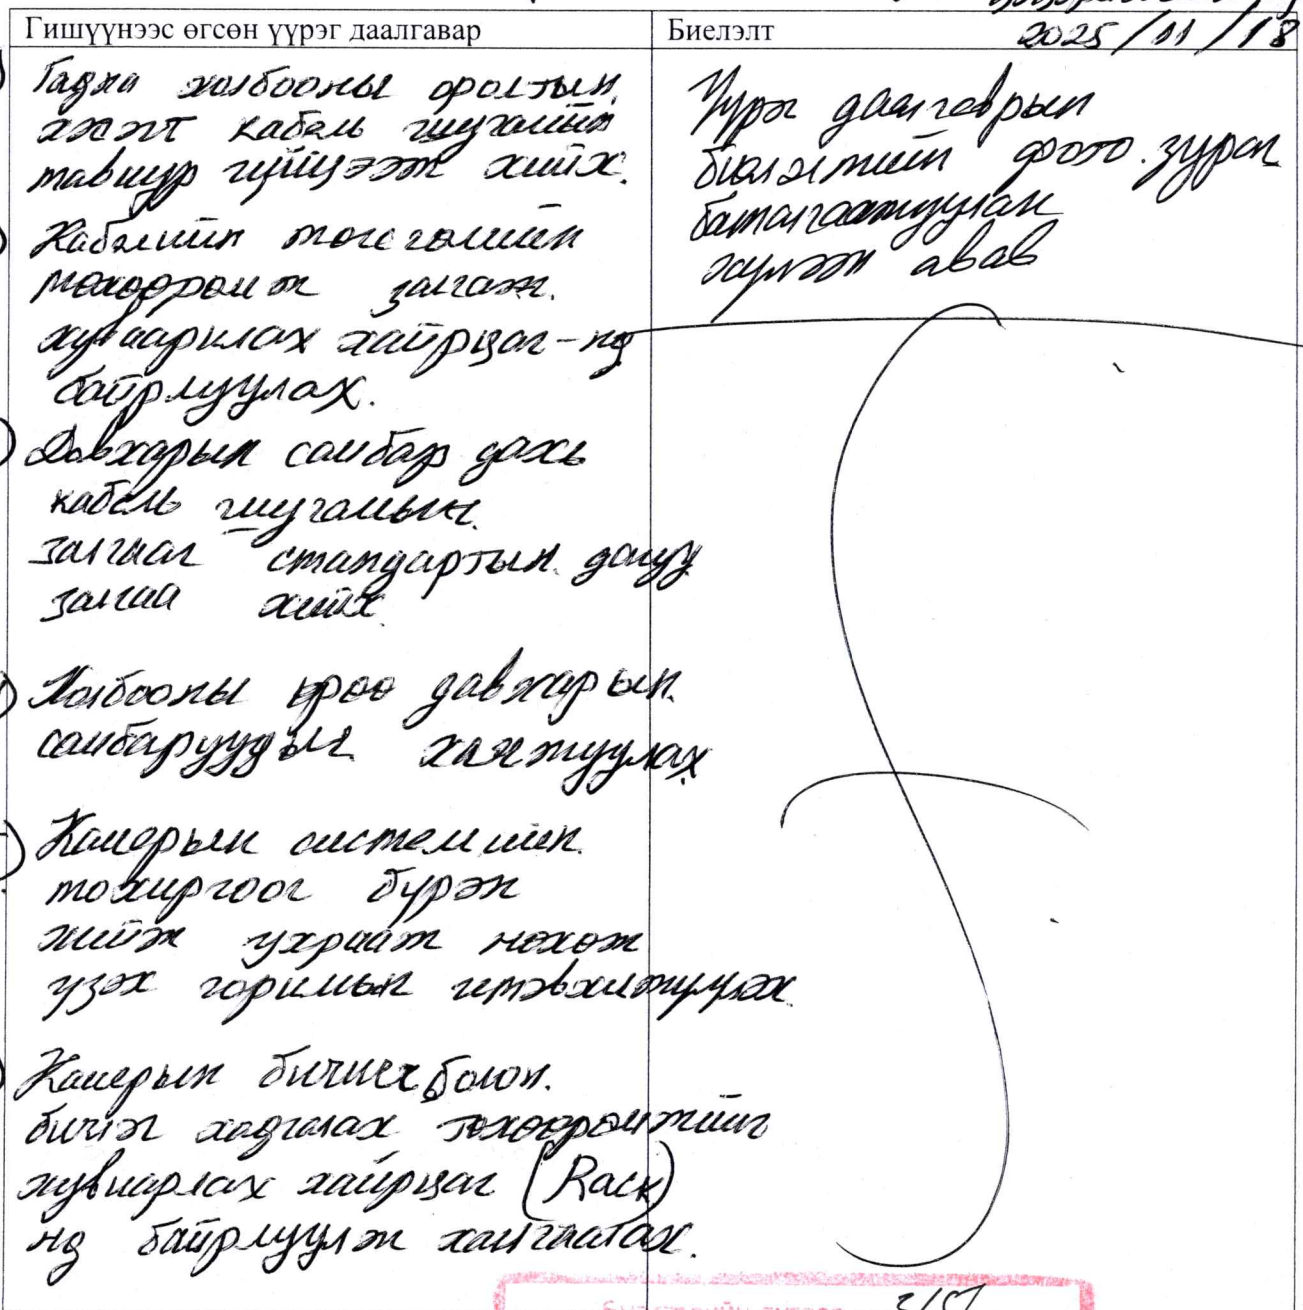 Гишүүнээс өгсөн үүрэг даалгавар
Биелэлт
2025/11/18
Гадна холбооны оролтын
хэсэгт кабель шугамын
тавиур гүйцээж хийх.
Кабелийн төгсгөлийн
төхөөрөмж залгаж
хуваарилах хайрцаг-нд
байрлуулах.
Давхарын самбар дахь
кабель шугамын
залгааг стандартын дагуу
залгаа хийх
Холбооны өрөө давхарын
самбаруудыг хаягжуулах
Камерын системийн
тохиргоог бүрэн
хийж ухрааж нөхөж
үзэх горимын идэвхижүүлэх
Камерын бичигч болон
бичлэг хадгалах төхөөрөмжийг
хувиарлах хайрцаг (Rack)
нд байрлуулж хангаатах.
Үүрэг даалгаврын
биелэлтийн фото зураг
баталгаажуулан
хүлээж авав